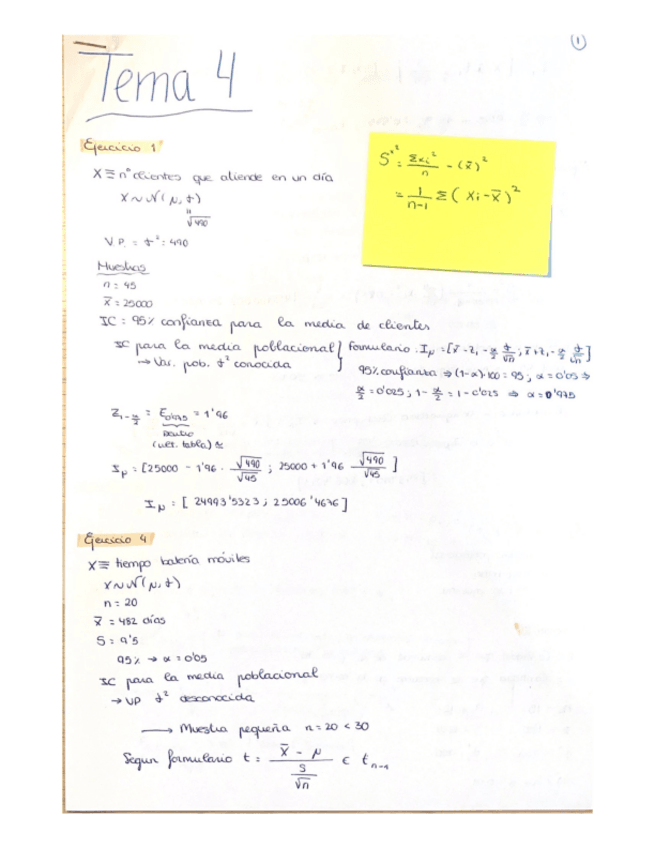 1
Tema 4
Ejercicio 1
X ≡ nº clientes que atiende en un día
X ~ N(μ, σ)
"
√490
V.P. = σ² = 490
Muestras
n = 45
x̄ = 25000
IC : 95% confianza para la media de clientes
IC para la media poblacional
→ Var. pob. σ² conocida
Formulario : Iμ = [x̄ - z₁₋α/₂ σ/√n ; x̄ + z₁₋α/₂ σ/√n]
95% confianza ⇒ (1-α)·100 = 95 ; α = 0'05 ⇒
α/2 = 0'025 ; 1 - α/2 = 1 - 0'025 ⇒ α = 0'975
S*² = Σxi²/n - (x̄)²
= 1/(n-1) Σ(xi - x̄)²
Z₁₋α/₂ = Z₀'₉₇₅ = 1'96
Dentro
Iμ = [25000 - 1'96 · √490/√45 ; 25000 + 1'96 √490/√45]
Iμ = [24993'5323 ; 25006'4676]
Ejercicio 4
X ≡ tiempo batería móviles
X ~ N(μ, σ)
n = 20
x̄ = 482 días
S = 9'5
95% → α = 0'05
IC para la media poblacional
→ VP σ² desconocida
→ Muestra pequeña n = 20 < 30
Segun formulario t = (x̄ - μ)/(s/√n) ∈ tₙ₋₁